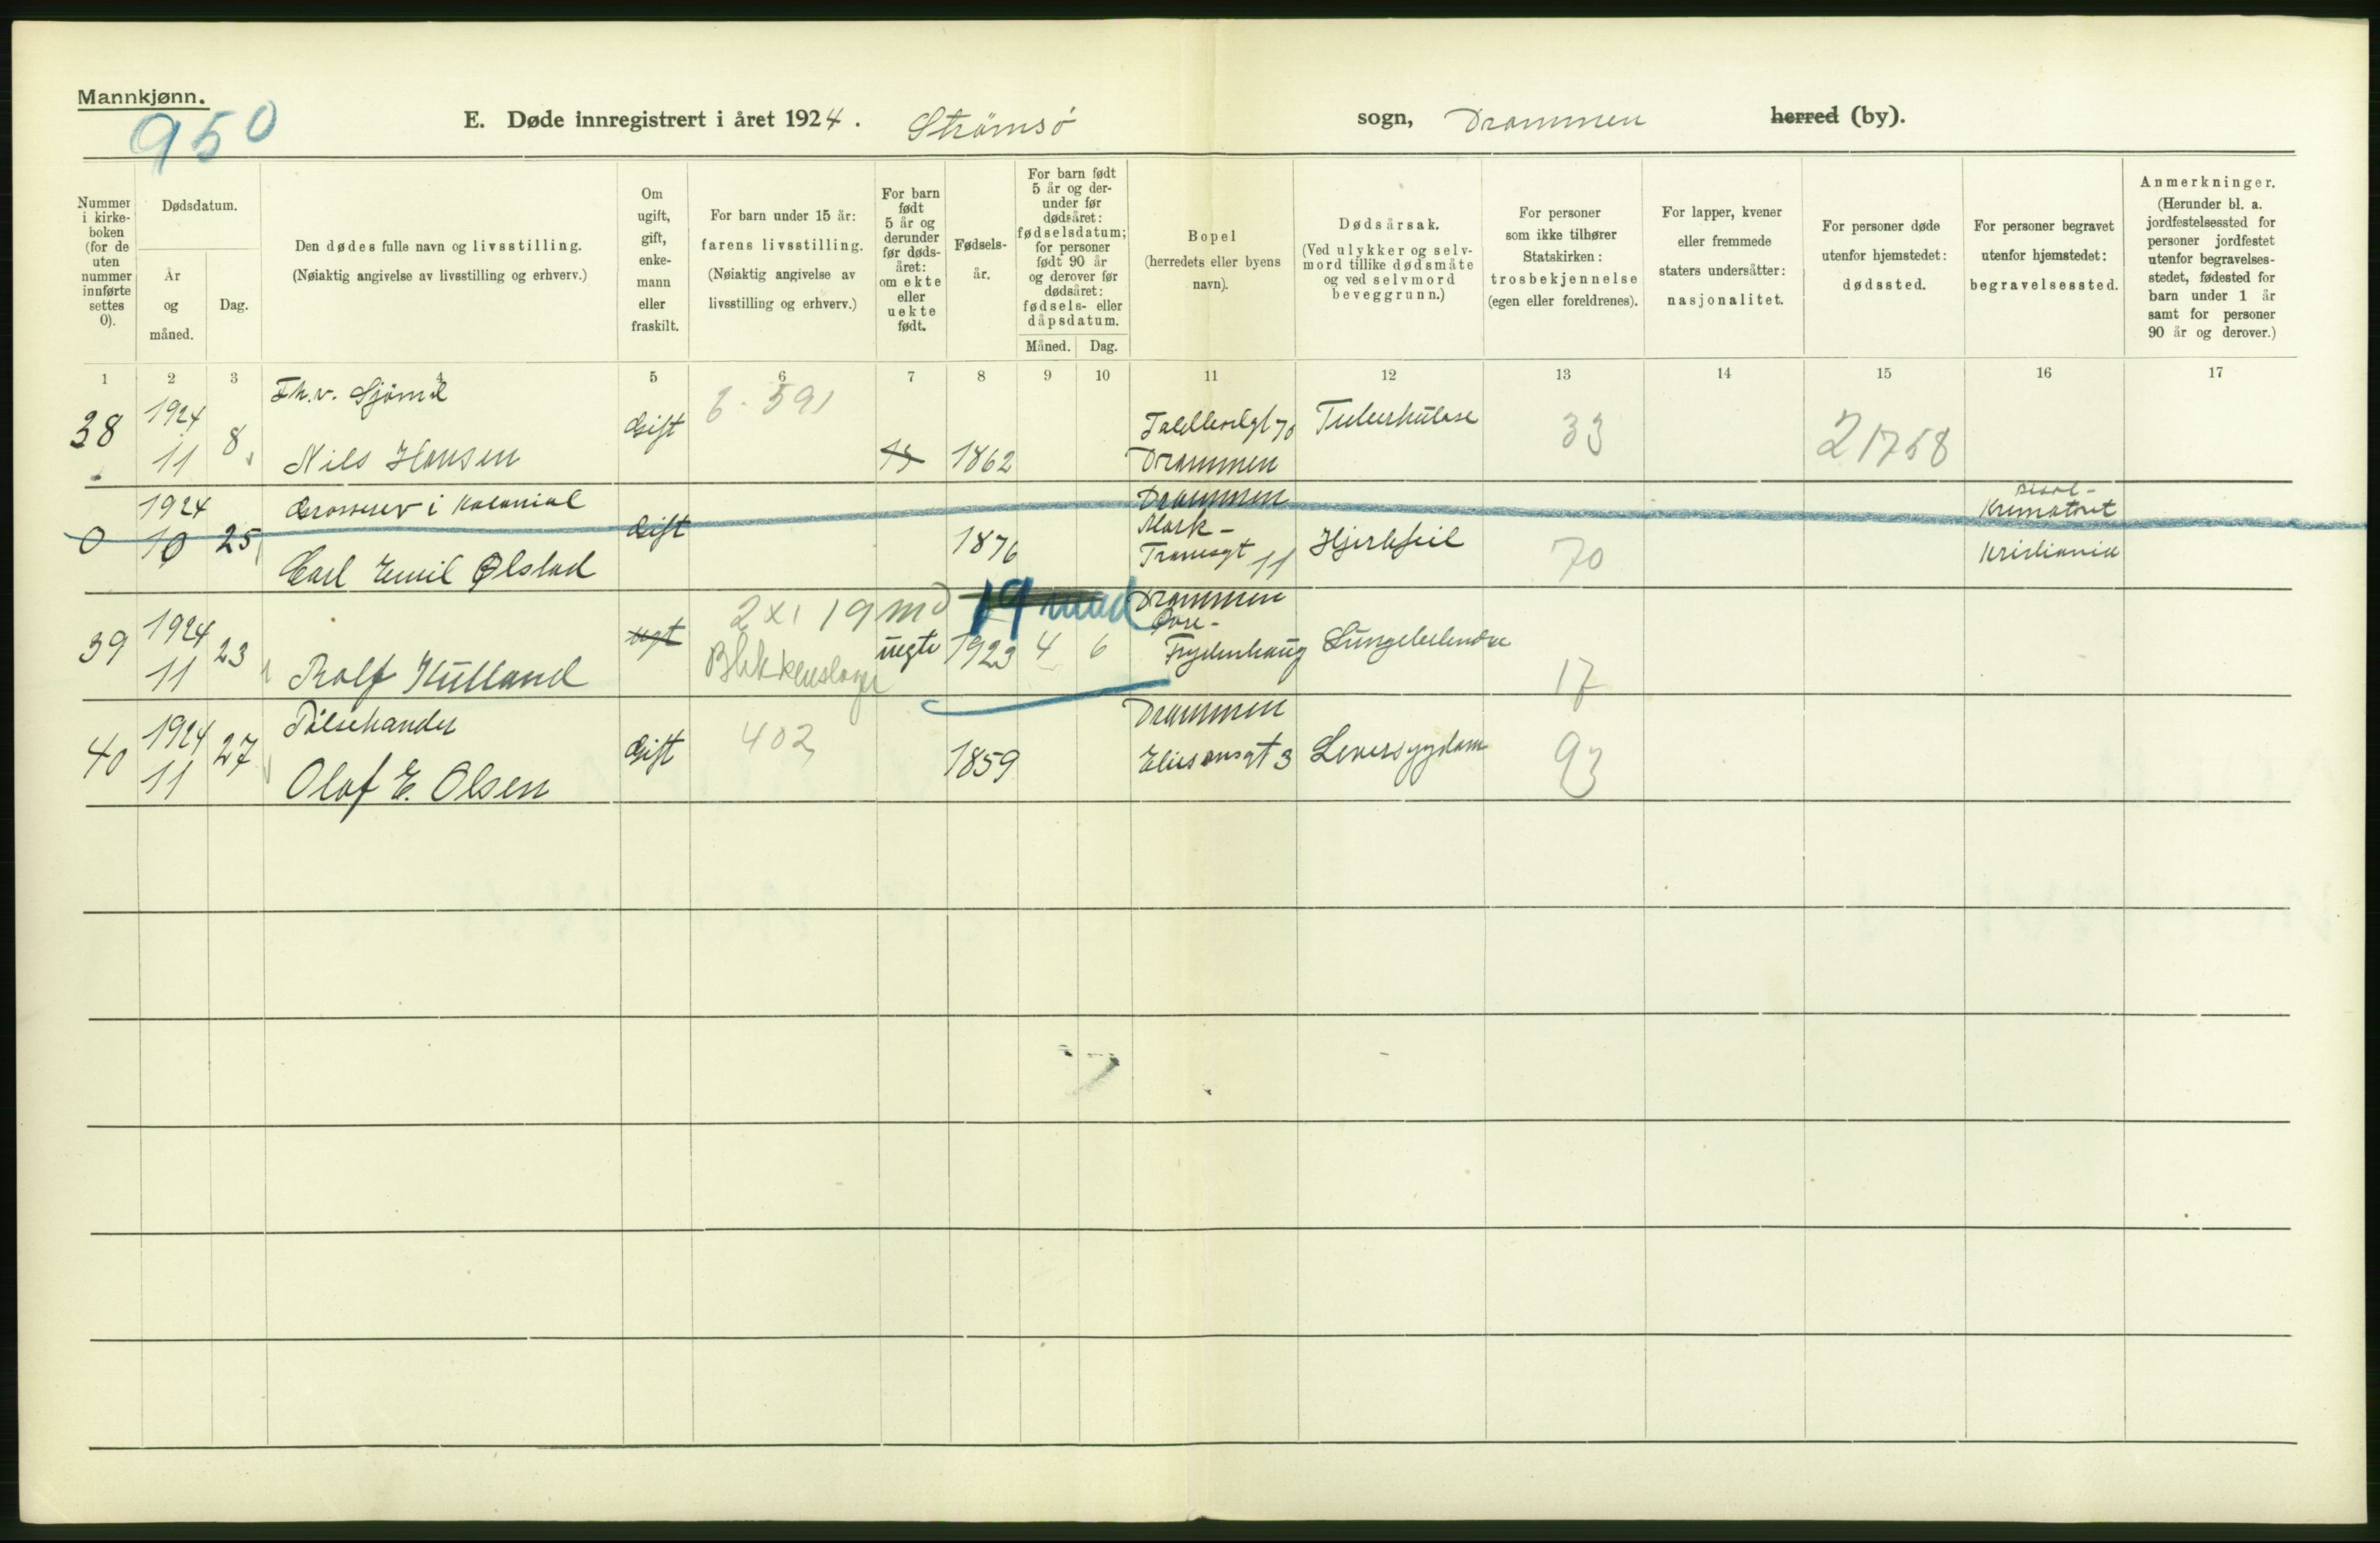 Mannkjønn.
950
E. Døde innregistrert i året 1924. Strømsø sogn, Drammen herred (by).
Nummer i kirke- boken (for de uten nummer innførte settes 0).
Dødsdatum.
År og måned.
Dag.
Den dødes fulle navn og livsstilling.
(Nøiaktig angivelse av livsstilling og erhverv.)
Om ugift, gift, enke- mann eller fraskilt.
For barn under 15 år:
farens livsstilling.
(Nøiaktig angivelse av livsstilling og erhverv.)
For barn født 5 år og derunder før døds- året: om ekte eller uekte født.
Fødsels- år.
For barn født 5 år og der- under før dødsåret: fødselsdatum; for personer født 90 år og derover før dødsåret: fødsels- eller dåpsdatum.
Måned.
Dag.
Bopel
(herredets eller byens navn).
Dødsårsak.
(Ved ulykker og selv- mord tillike dødsmåte og ved selvmord beveggrunn.)
For personer som ikke tilhører Statskirken:
trosbekjennelse
(egen eller foreldrenes).
For lapper, kvener eller fremmede staters undersåtter:
nasjonalitet.
For personer døde utenfor hjemstedet:
dødssted.
For personer begravet utenfor hjemstedet:
begravelsessted.
Anmerkninger.
(Herunder bl. a. jordfestelsessted for personer jordfestet utenfor begravelses- stedet, fødested for barn under 1 år samt for personer 90 år og derover.)
1 2 3 4 5 6 7 8 9 10 11 12 13 14 15 16 17
38 1924 11 8 Fh.v. Sjömd
Nils Hansen Gift 1862 70
Drammen Tuberkulose 33 21758
0 1924 10 25 Grosserer i Kolonial
Carl Emil Ølstad Gift 1876 Drammen
Mark-
Tranesgt 11 Hjertefeil 70 Krematoriet
Kristiania
39 1924 11 23 Rolf Kulland ugt 2x1 19 md
Blikkenslager uegte 19 mnd 1923 4 6 Drammen
Øvre-
Frydenhaug Lungebetendse 17
40 1924 11 27 Pölsehandler
Olaf E. Olsen Gift 402 1859 Drammen
Eliesonsgt 3 Leversygdom 93